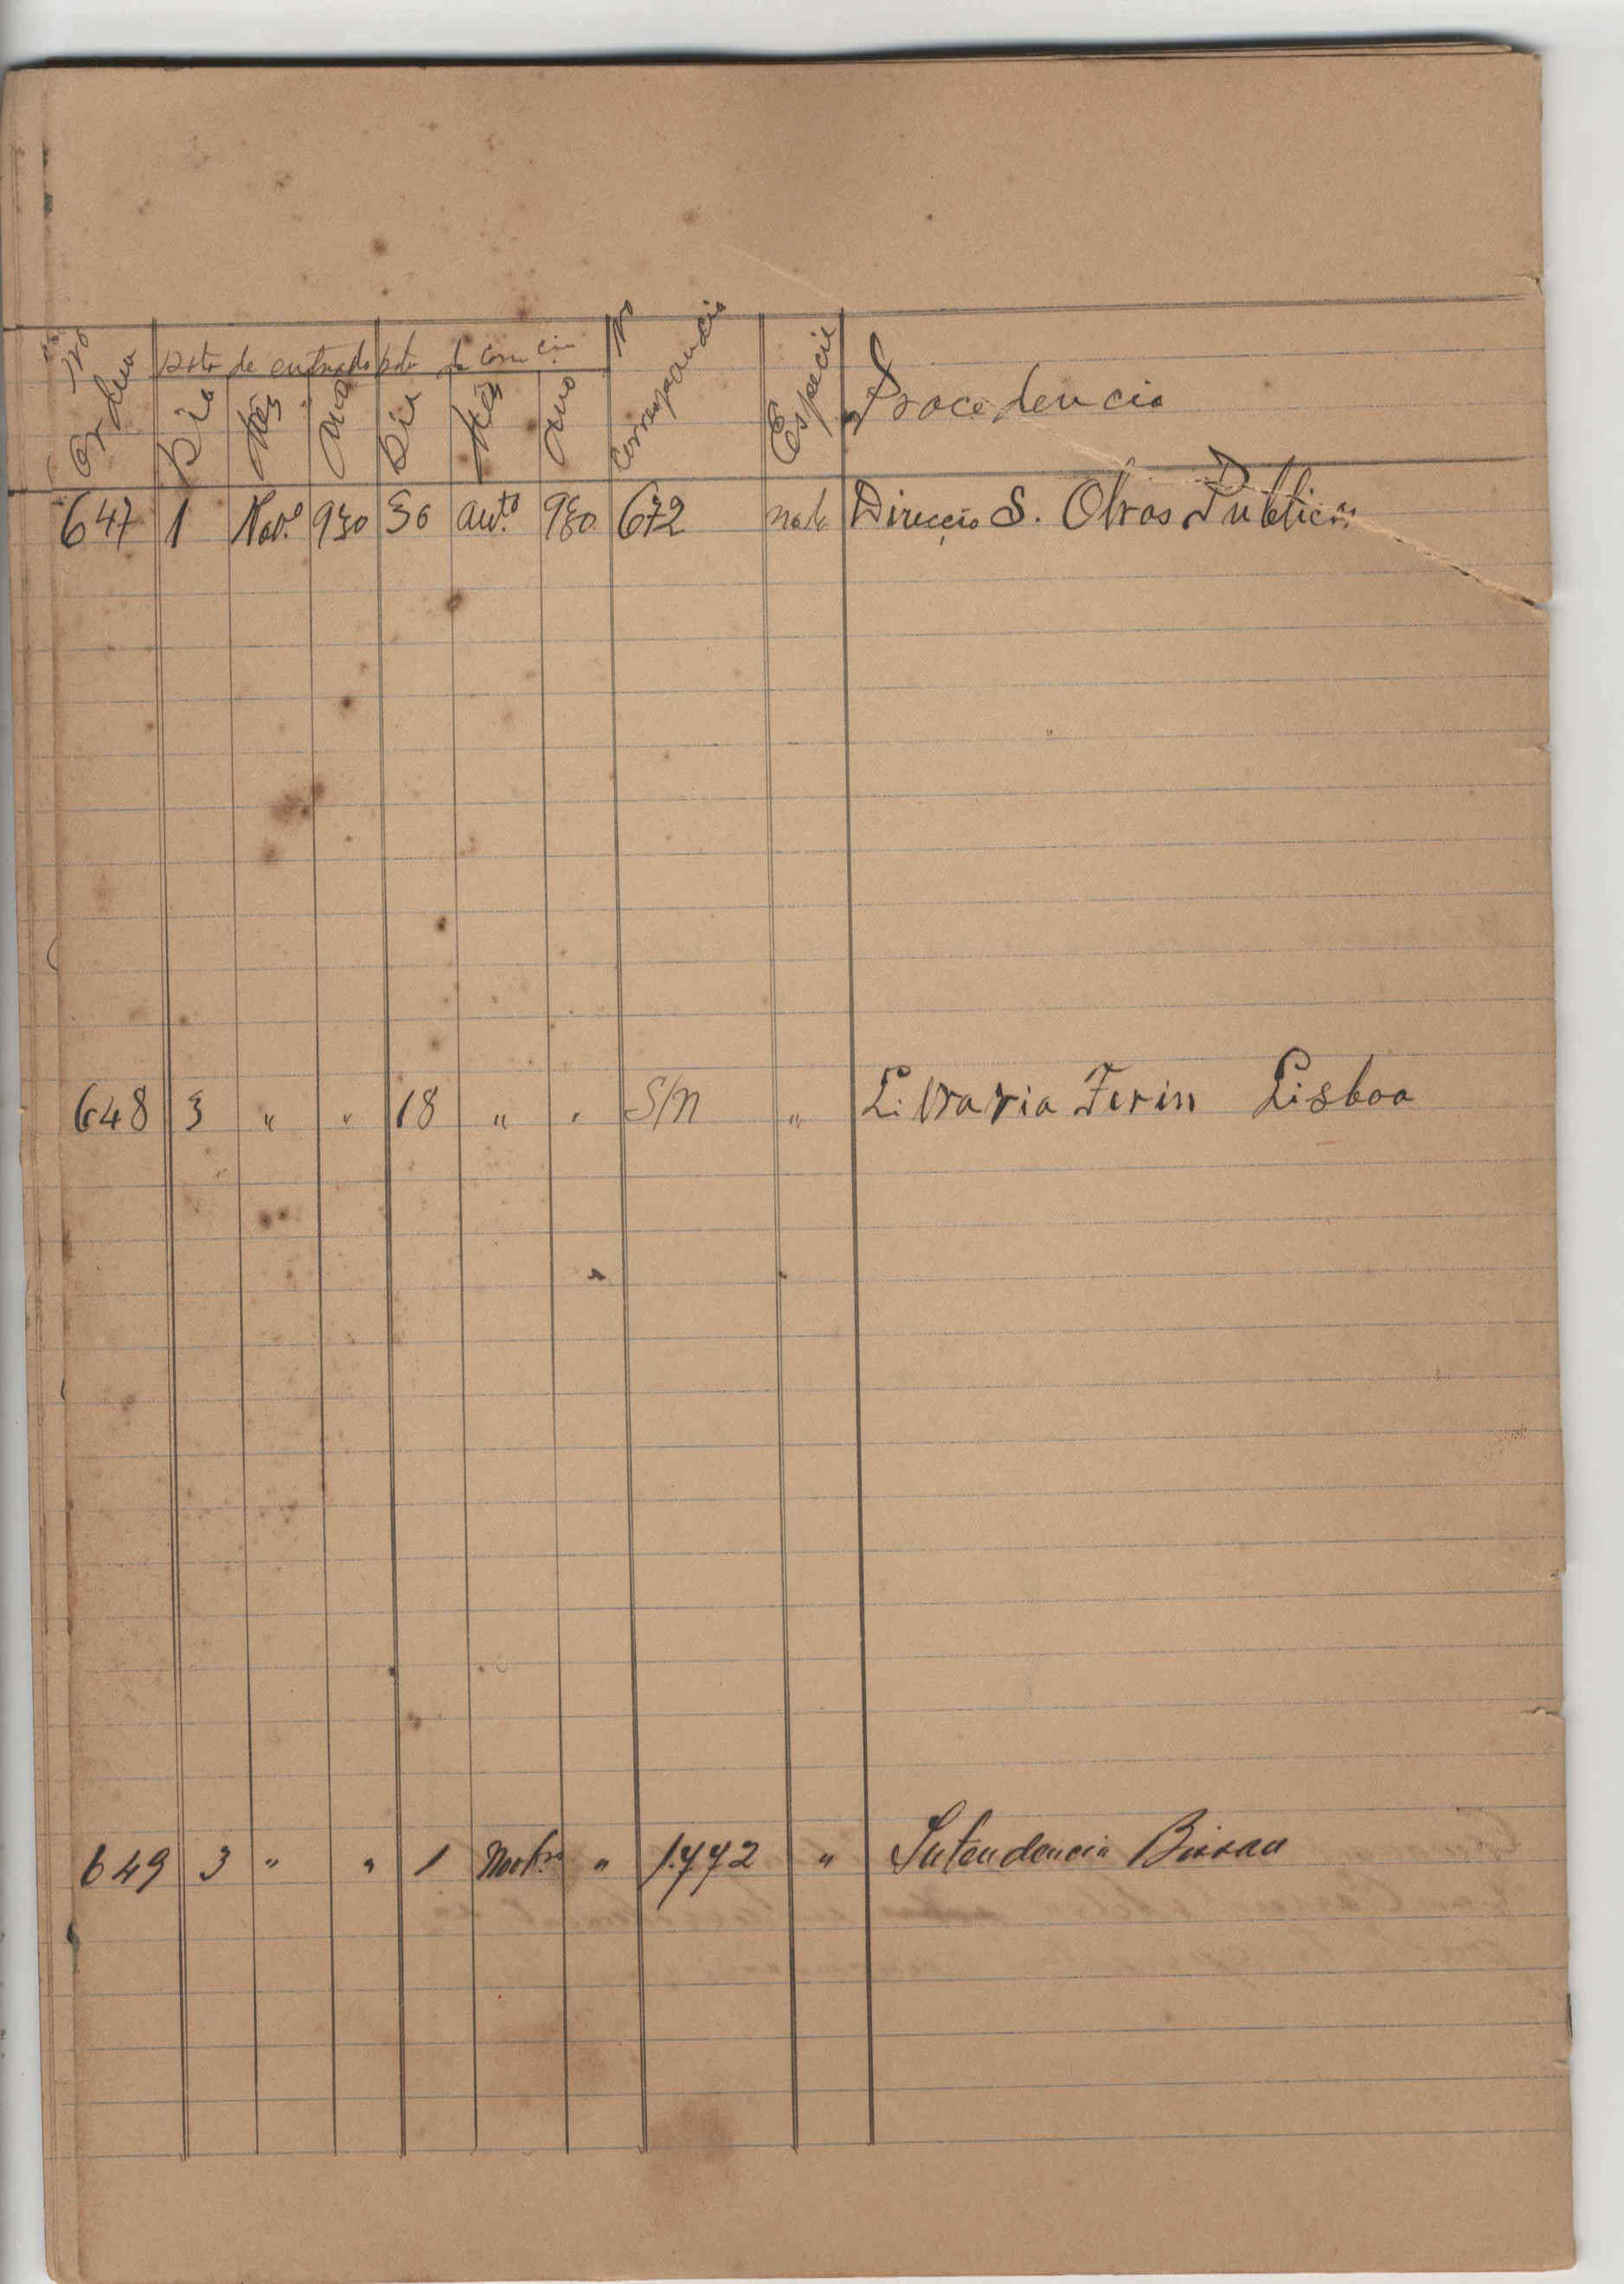 Nº Ordem Data de entrada Data da Corr.cia Nº Correspondencia Especie Procedencia
Dia Mês Ano Dia Mês Ano
647 1 Nov.º 930 30 out.º 930 672 nota Direcção S. Obras Publicas
648 3 " " 18 " " S/n " Livraria Ferin Lisboa
649 3 " " 1 " 1.772 " Intendencia Bissau